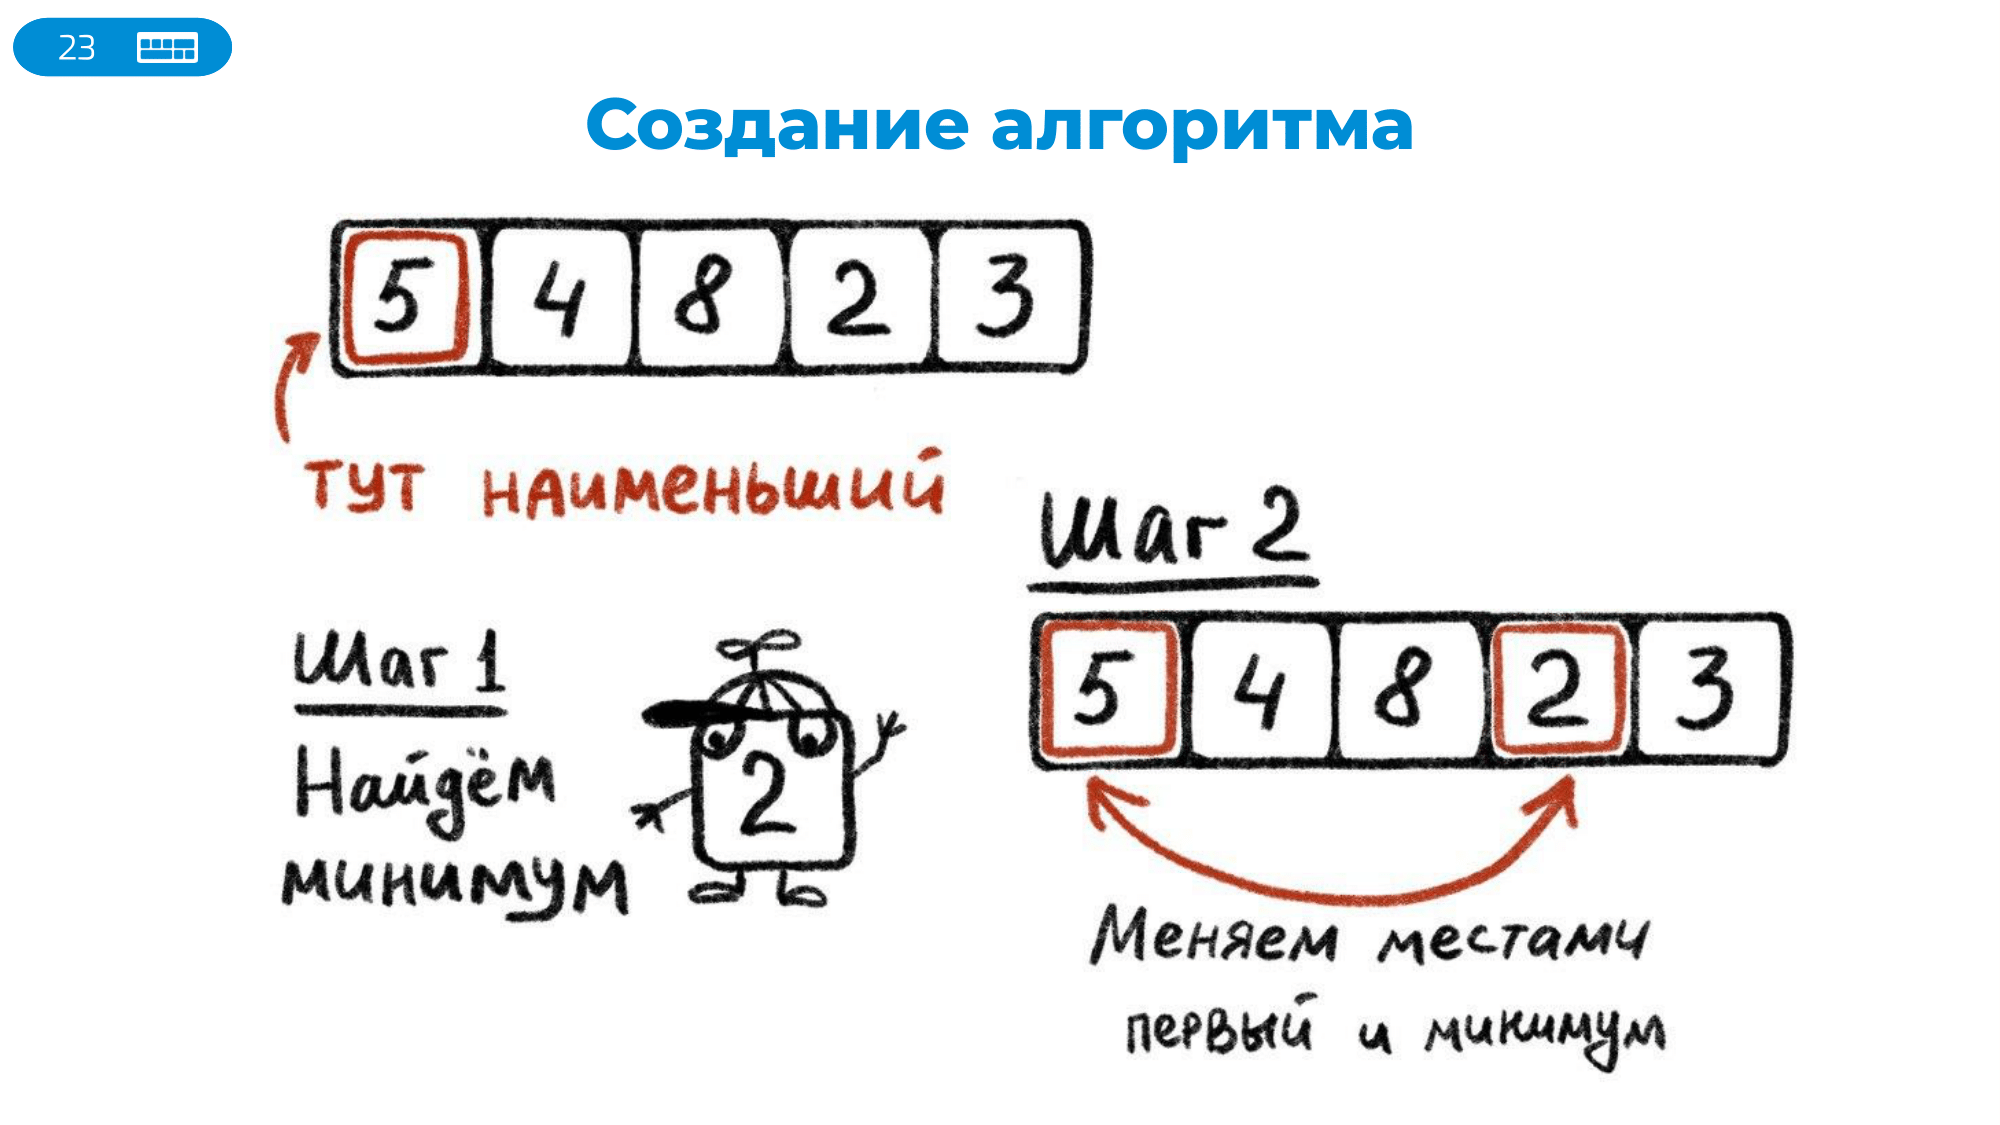 23
Создание алгоритма
5 4 8 2 3
тут наименьший
Шаг 1
Найдём
минимум
2
Шаг 2
5 4 8 2 3
Меняем местами
первый и минимум